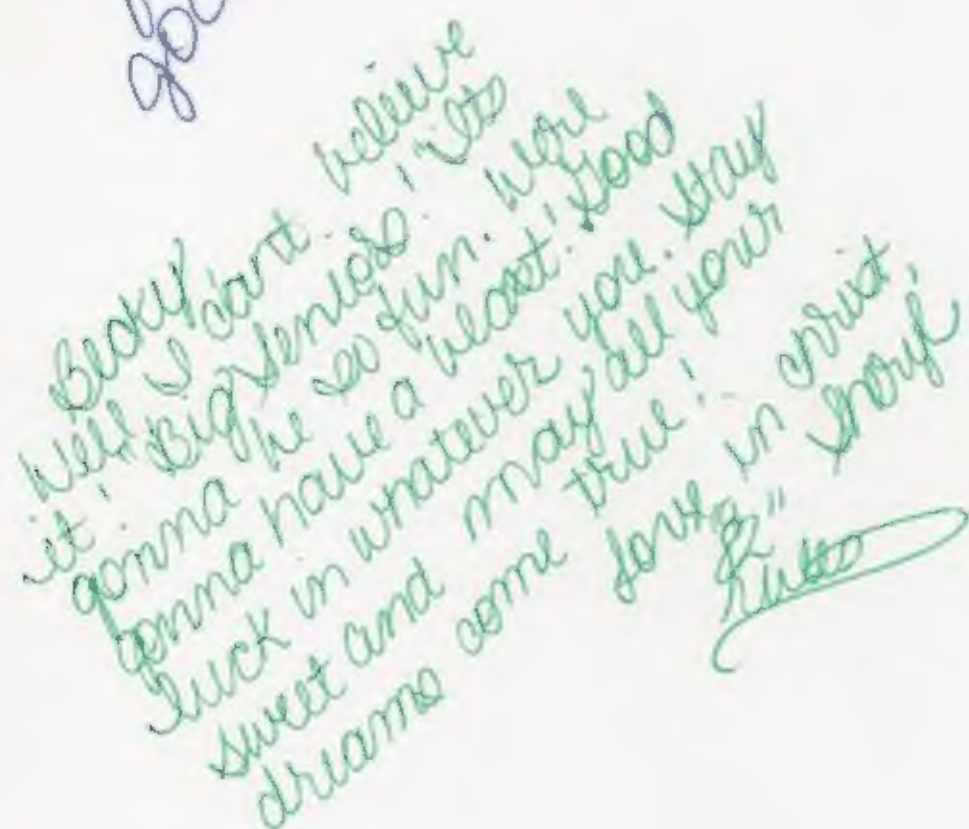 go
Becky,
Well I can't believe
it! Big seniors! Its
gonna be so fun. Were
gonna have a blast! Good
luck in whatever you. Stay
sweet and may all your
dreams come true!
Love in Christ,